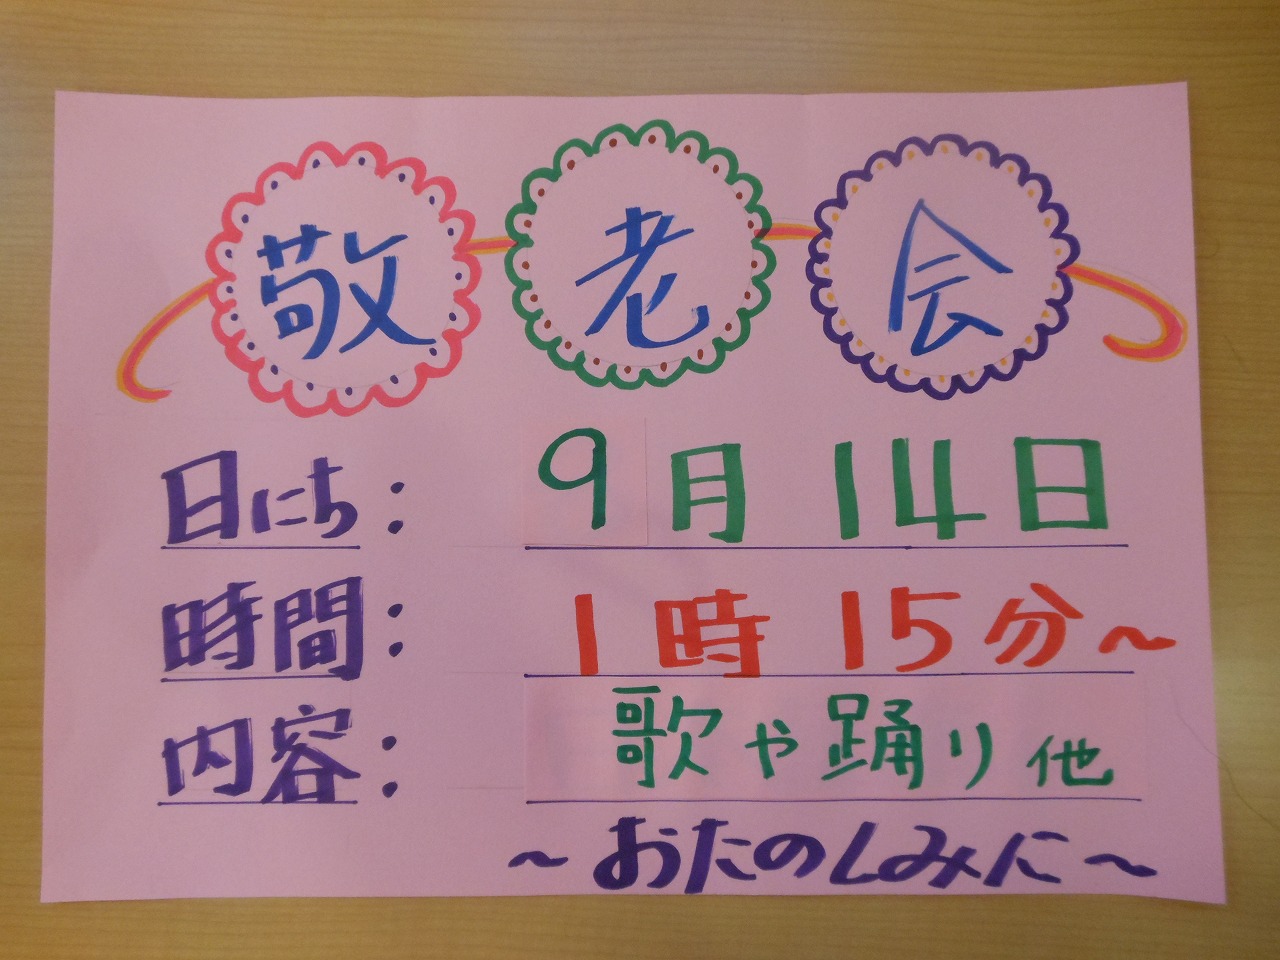 敬老会
日にち： 9月14日
時間： 1時15分～
内容： 歌や踊り他
～おたのしみに～